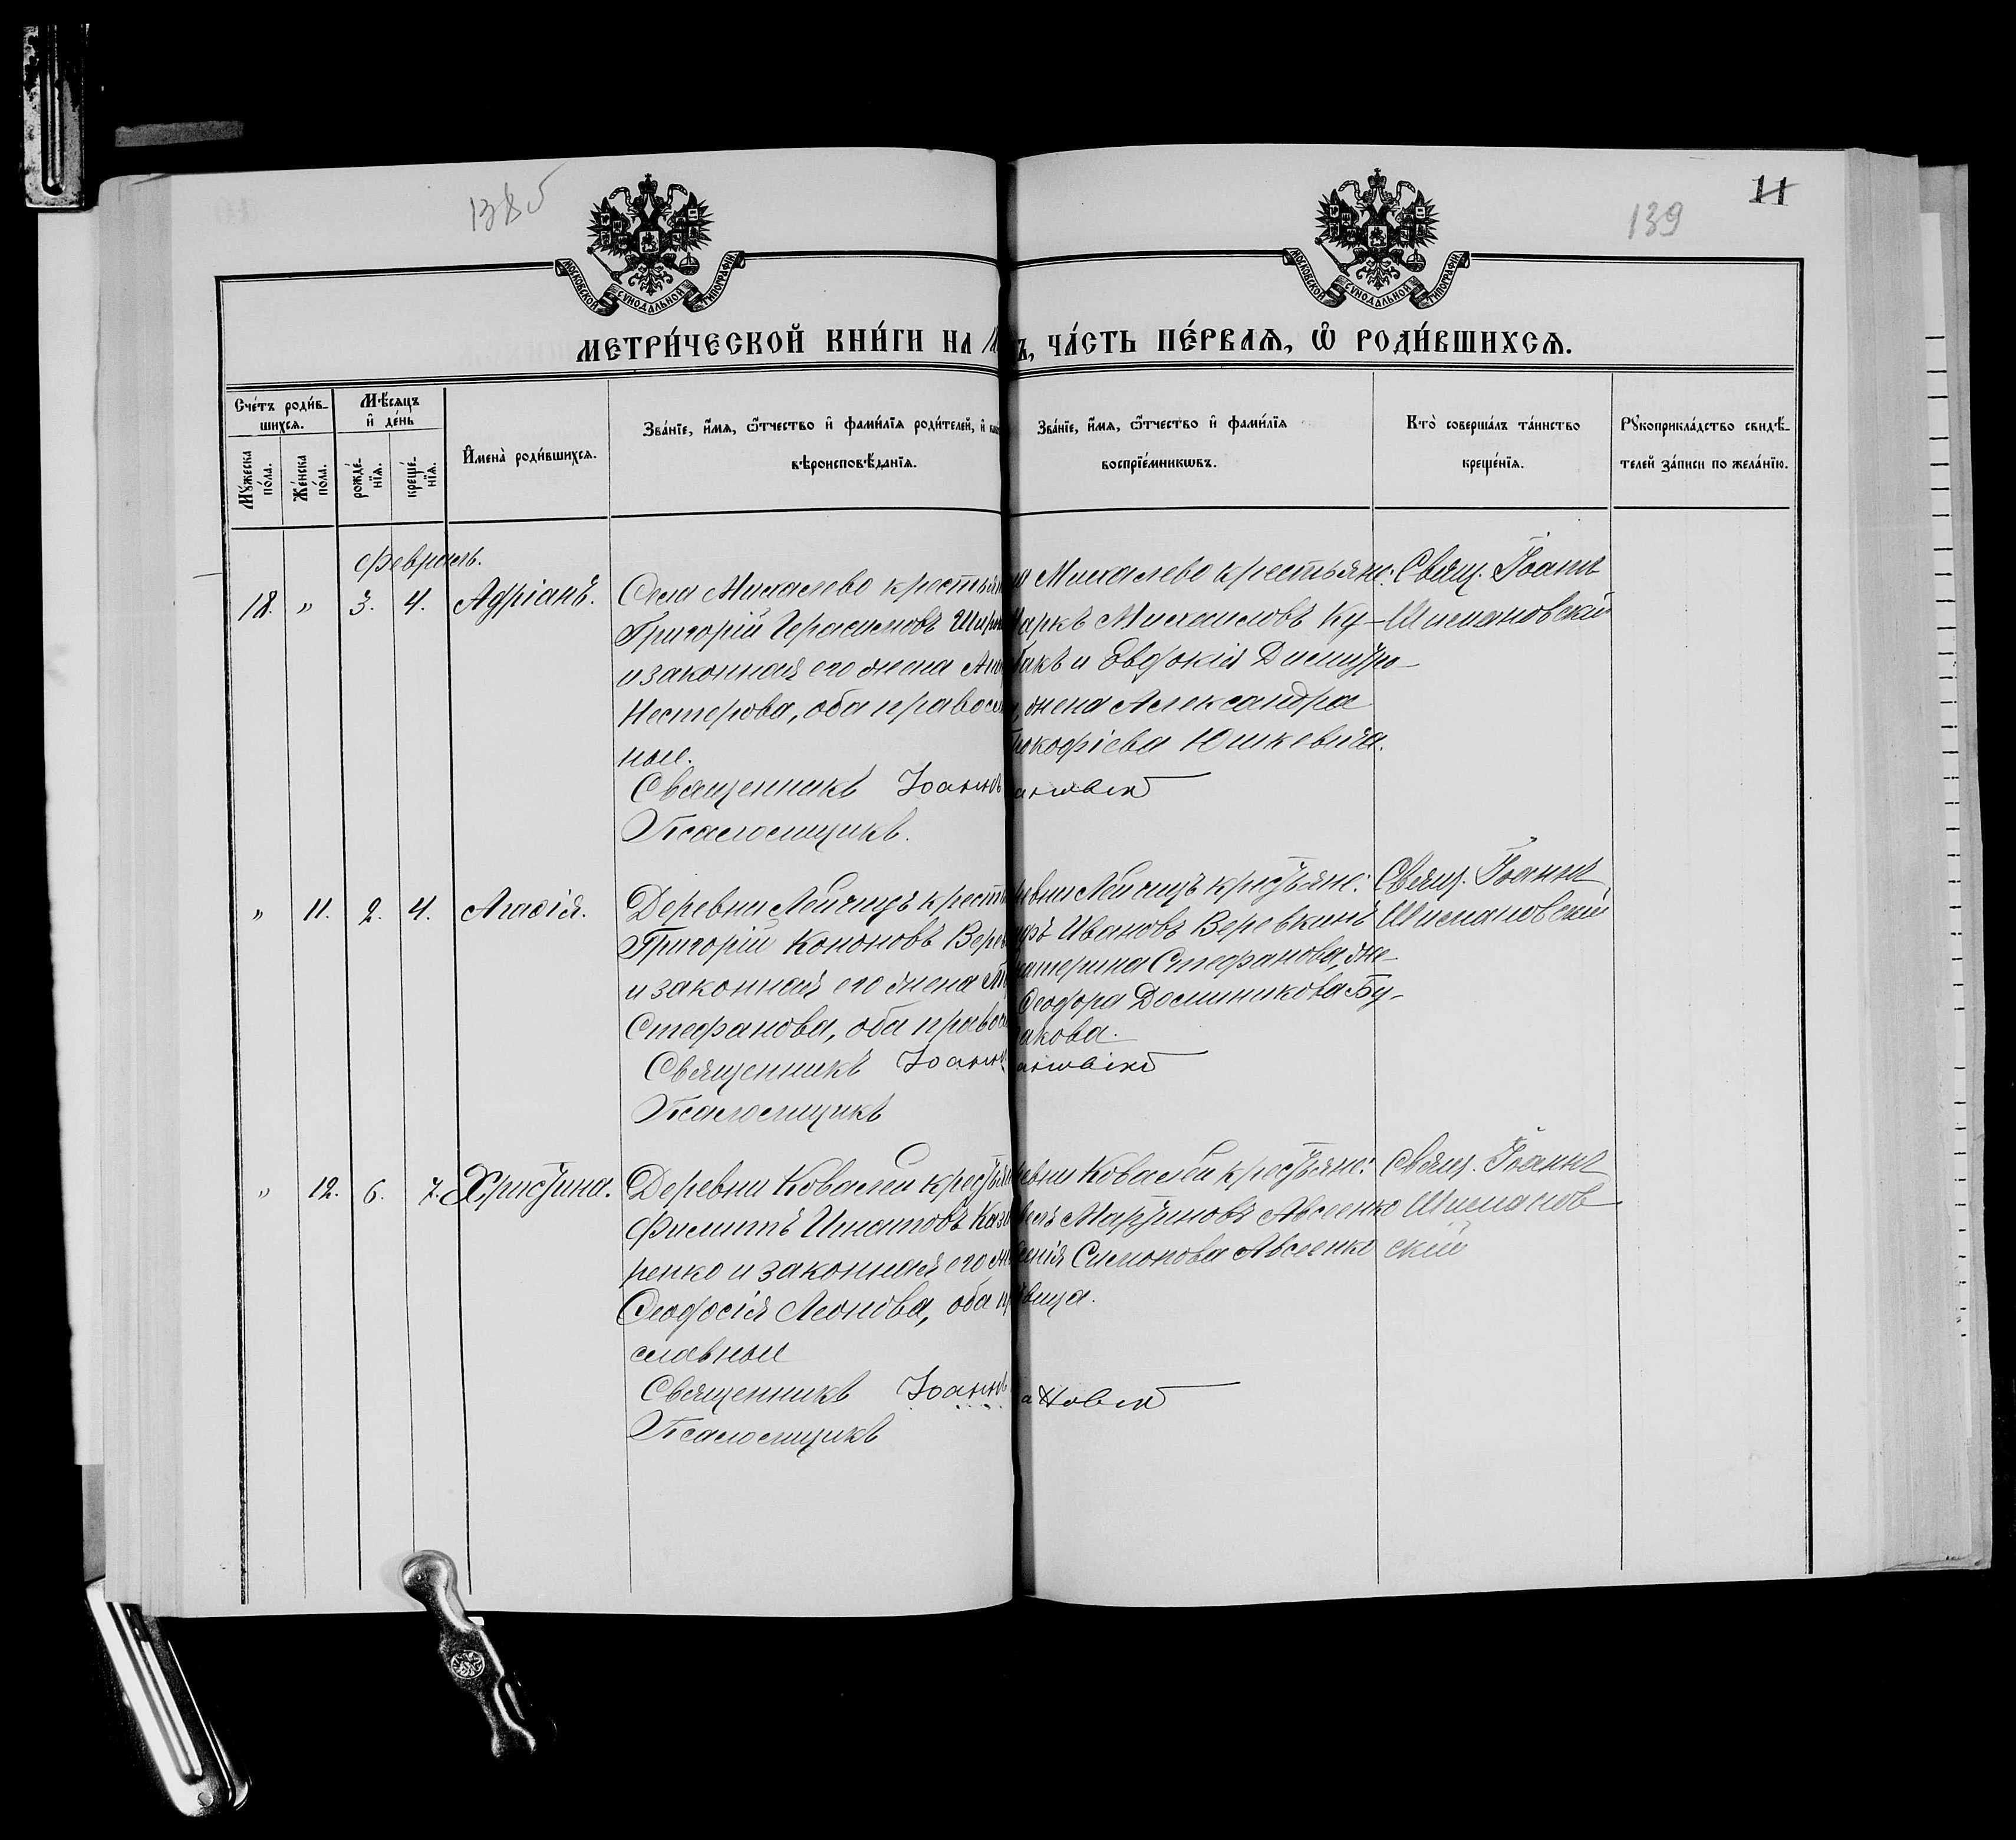 138 об
139
11
МОСКОВСКОЙ СѴНОДАЛЬНОЙ ТИПОГРАФІИ
МОСКОВСКОЙ СѴНОДАЛЬНОЙ ТИПОГРАФІИ
МЕТРИ́ЧЕСКОЙ КНИ́ГИ НА
Ъ, ЧА́СТЬ ПЕ́РВАѦ, Ѽ РОДИ́ВШИХСѦ.
Сче́тъ роди́в-
шихсѧ.
Мꙋ́жеска по́ла.
Же́нска по́ла.
Мѣ́сѧцъ и҆ де́нь
рожде́-нїѧ.
креще́-нїѧ.
И҆мена̀ роди́вшихсѧ.
Зва́нїе, и҆́мѧ, ѻ҆́тчество и҆ фами́лїѧ роди́телей, и҆
вѣроисповѣ́данїѧ.
Зва́нїе, и҆́мѧ, ѻ҆́тчество и҆ фами́лїѧ
воспрїе́мникѡвъ.
Кто̀ соверша́лъ та́инство
креще́нїѧ.
Рꙋкоприкла́дство свидѣ́-
телей за́писи по жела́нїю.
Февраль.
18. " 3. 4. Адріанъ.
Села Михалево крестьян
Григорій Герасимовъ Широ
и законная его жена
Нестерова, оба правосла
ные.
Священникъ Іоаннъ
Псаломщикъ.
Михалево крестьяне:
Маркъ Михаиловъ Ку-
бакъ и Евдокія Димитро-
, жена Александра
Прокофіева Юшкевича.
ановскій
Свящ. Іоаннъ
Шимановскій
" 11. 2. 4. Агафія.
Деревни Лейчицъ крестья
Григорій Кононовъ Верев
и законная его жена
Стефанова, оба правосл
Священникъ Іоаннъ
Псаломщикъ
ревни Лейчицъ крестьяне:
Ивановъ Веревкинъ
катерина Стефанова, же-
Ѳеодора Доминикова Бу-
акова.
ановскій
Свящ. Іоаннъ
Шимановскій
" 12. 6. 7. Христина.
Деревни Ковалей крестьян
Филиппъ Игнатовъ Каза
ренко и законная его же
Ѳеодосія Леонова, оба пра
славные
Священникъ Іоаннъ
Псаломщикъ
ревни Ковалей крестьяне:
Мартиновъ Авсеенко
Симонова Авсеенко
вица.
ановскій
Свящ. Іоаннъ
Шиманов-
скій